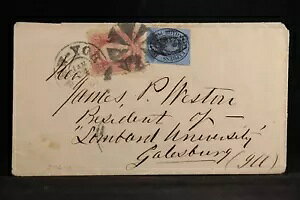 YORK
Rev
James P. Weston
Resident of
"Lombard University"
Galesburg (Ill)